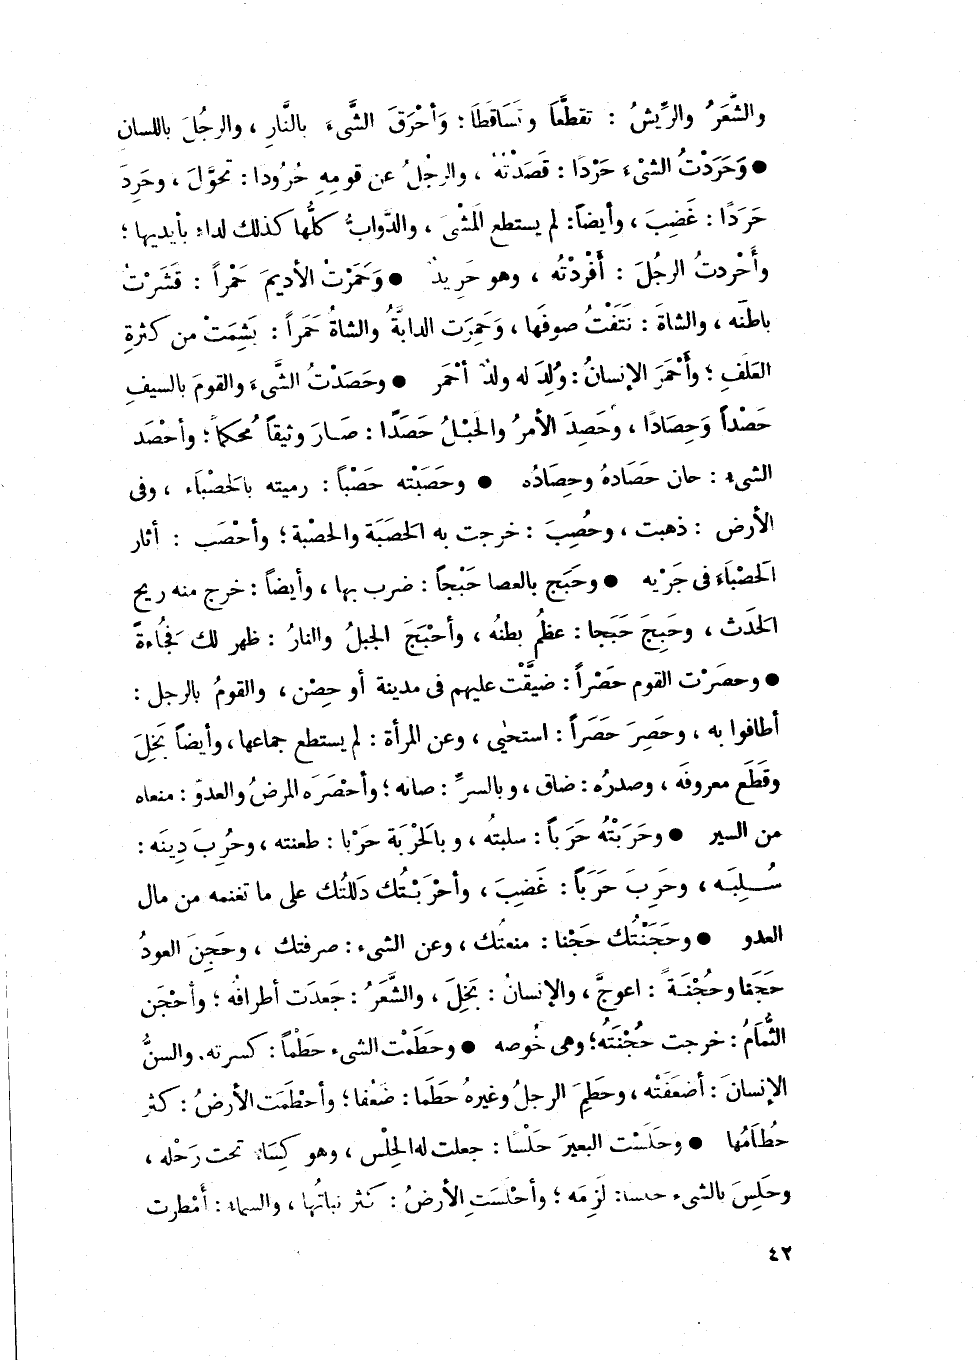 والشَّعَرُ والرِّيشُ : تقطَّعَا وتَسَاقَطَا ؛ وَأحْرَقَ الشَّىءَ بالنَّارِ ، والرجُلَ باللسان
● وَحَرَدْتُ الشىْءَ حَرْدًا : قَصَدْتُهُ ، والرجُلُ عن قومِهِ حُرُودا : تحوَّلَ ، وحَرِدَ
حَرَدًا : غَضِبَ ، وأيضاً : لم يستطع المَشْىَ ، والدَّوابُّ كلُّها كذلك لداءٍ بأيديها ؛
وأَحْردتُ الرجُلَ : أَفْرَدْتُه ، وهو حَرِيدٌ ● وَحَمَرْتُ الأديمَ حَمْراً : قَشَرْتُ
باطنَه ، والشاةَ : نَتَفْتُ صوفَها ، وَحَمِرَت الدابَّةُ والشاةُ حَمَراً : بَشِمَتْ من كثرةِ
العَلَفِ ؛ وَأَحْمَرَ الإنسانُ : وُلِدَ له ولدٌ أحْمَر ● وحَصَدْتُ الشَّىءَ والقومَ بالسيفِ
حَصْداً وَحِصَادًا ، وحَصِدَ الأمرُ والحَبْلُ حَصَدًا : صَارَ وثيقاً مُحكماً ؛ وأحْصَد
الشىء : حان حَصَادهُ وحِصَادُه ● وحَصَبْته حَصْباً : رميته بالحَصْبَاء ، وفى
الأرض : ذهبت ، وحُصِبَ : خرجت به الحَصَبَة والحصْبة ؛ وأحْصَب : أثار
الحَصْبَاءَ فى جَرْيه ● وحَبَج بالعصا حَبْجاً : ضرب بها ، وأيضاً : خرج منه ريح
الحَدَث ، وحَبِجَ حَبَجا : عظُم بطنُه ، وأحْبَجَ الجبلُ والنارُ : ظهر لك فَجُاءةً
● وحصَرْت القوم حَصْراً : ضيقَّت عليهم فى مدينة أو حِصْن ، والقومُ بالرجل :
أطافوا به ، وحَصِرَ حَصَراً : استحيٰى ، وعن المرأة : لم يستطع جماعها ، وأيضاً بَخِلَ
وقَطَع معروفَه ، وصدرُه : ضاق ، وبالسرِّ : صانه ؛ وأحْصَرَه المرضُ والعدوّ : منعاه
من السير ● وحَرَبْتُه حَرَباً : سلبتُه ، وبالحَرْبَة حَرْبا : طعنته ، وحُرِبَ دِينَه :
سُلِبَه ، وحَرِبَ حَرَباً : غَضِبَ ، وأحْرَبْتُك دَللتُك على ما تغنمه من مال
العدو ● وحَجَنْتُك حَجْنا : منعتُك ، وعن الشىء : صرفتك ، وحَجِنَ العودُ
حَجَنا وحُجْنَةً : اعوجَّ ، والإنسانُ : بَخِلَ ، والشَّعَرُ : جَعدَت أطرافُه ؛ وأحْجَن
الثُّمَامُ : خرجت حُجْنَتَهُ ؛ وهى خُوصه ● وحَطَمْت الشىء حَطْماً : كسرته . والسنُّ
الإنسانَ : أضعَفَتْه ، وحَطِمَ الرجلُ وغيرهُ حَطَما : ضَعْفا ؛ وأحْطَمَت الأرضُ : كثر
حُطَامُها ● وحَلَسْت البعيرَ حَلْسًا : جعلت له الحِلْس ، وهو كِسَاءٌ تحت رَحْله ،
وحَلِسَ بالشىء حلسا : لَزِمَه ؛ وأحْلَسَت الأرضُ : كثر نباتُها ، والسماء : أمْطرت
٤٢